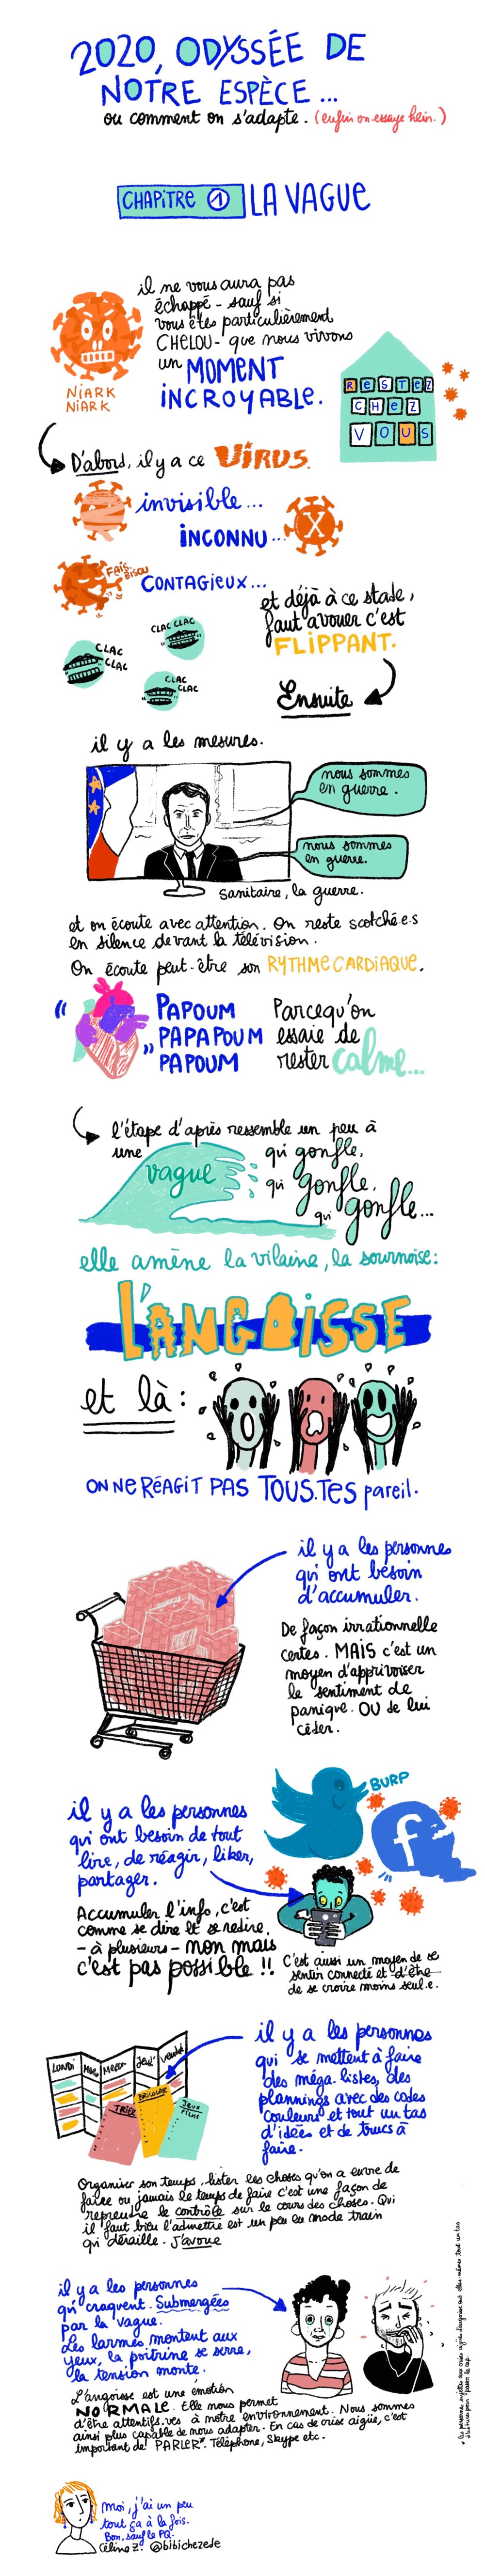 2020, ODYSSÉE DE
NOTRE ESPÈCE...
ou comment on s'adapte. (enfin on essaye hein.)
CHAPITRE 1 LA VAGUE
il ne vous aura pas
échappé - sauf si
vous êtes particulièrement
CHELOU - que nous vivons
un MOMENT
INCROYABLE.
NIARK
NIARK
RESTEZ
CHEZ
VOUS
D'abord, il y a ce VIRUS.
invisible...
INCONNU...
X
FAIS BISOU
CONTAGIEUX...
et déjà à ce stade,
faut avouer c'est
FLIPPANT.
CLAC CLAC
CLAC
CLAC
CLAC
CLAC
Ensuite
il y a les mesures.
nous sommes
en guerre.
nous sommes
en guerre.
sanitaire, la guerre.
et on écoute avec attention. On reste scotché.e.s
en silence devant la télévision.
On écoute peut-être son RYTHME CARDIAQUE.
"PAPOUM
PAPAPOUM
PAPOUM"
Parcequ'on
essaie de
rester calme...
l'étape d'après ressemble un peu à
une vague
qui gonfle,
qui gonfle,
qui gonfle...
elle amène la vilaine, la sournoise:
L'ANGOISSE
et là:
ON NE RÉAGIT PAS TOUS.TES pareil.
il y a les personnes
qui ont besoin
d'accumuler.
De façon irrationnelle
certes. MAIS c'est un
moyen d'apprivoiser
le sentiment de
panique. OU de lui
céder.
BURP
f
il y a les personnes
qui ont besoin de tout
lire, de réagir, liker,
partager.
Accumuler l'info, c'est
comme se dire et se redire,
- à plusieurs - non mais
c'est pas possible !!
C'est aussi un moyen de se
sentir connecté et d'être
de se croire moins seul.e.
LUNDI MAR MERCR JEUDI VENDRE
TRIER
BRICOLER
JEUX
FILMS
il y a les personnes
qui se mettent à faire
des méga-listes, des
plannings avec des codes
couleurs et tout un tas
d'idées et de trucs à
faire.
Organiser son temps, lister les choses qu'on a envie de
faire ou jamais le temps de faire c'est une façon de
reprendre le contrôle sur le cours des choses. Qui
il faut bien l'admettre est un peu en mode train
qui déraille. J'avoue
il y a les personnes
qui craquent. Submergées
par la vague.
Les larmes montent aux
yeux, la poitrine se serre,
la tension monte.
L'angoisse est une émotion
NORMALE. Elle nous permet
d'être attentifs.ves à notre environnement. Nous sommes
ainsi plus capable de nous adapter. En cas de crise aigüe, c'est
important de PARLER*. Téléphone, Skype etc.
* les personnes sujettes aux crises aigües d'angoisse ont elles-mêmes tout un tas
d'astuces pour passer le cap.
moi, j'ai un peu
tout ça à la fois.
Bon, sauf le PQ.
Céline Z. @bibichezede